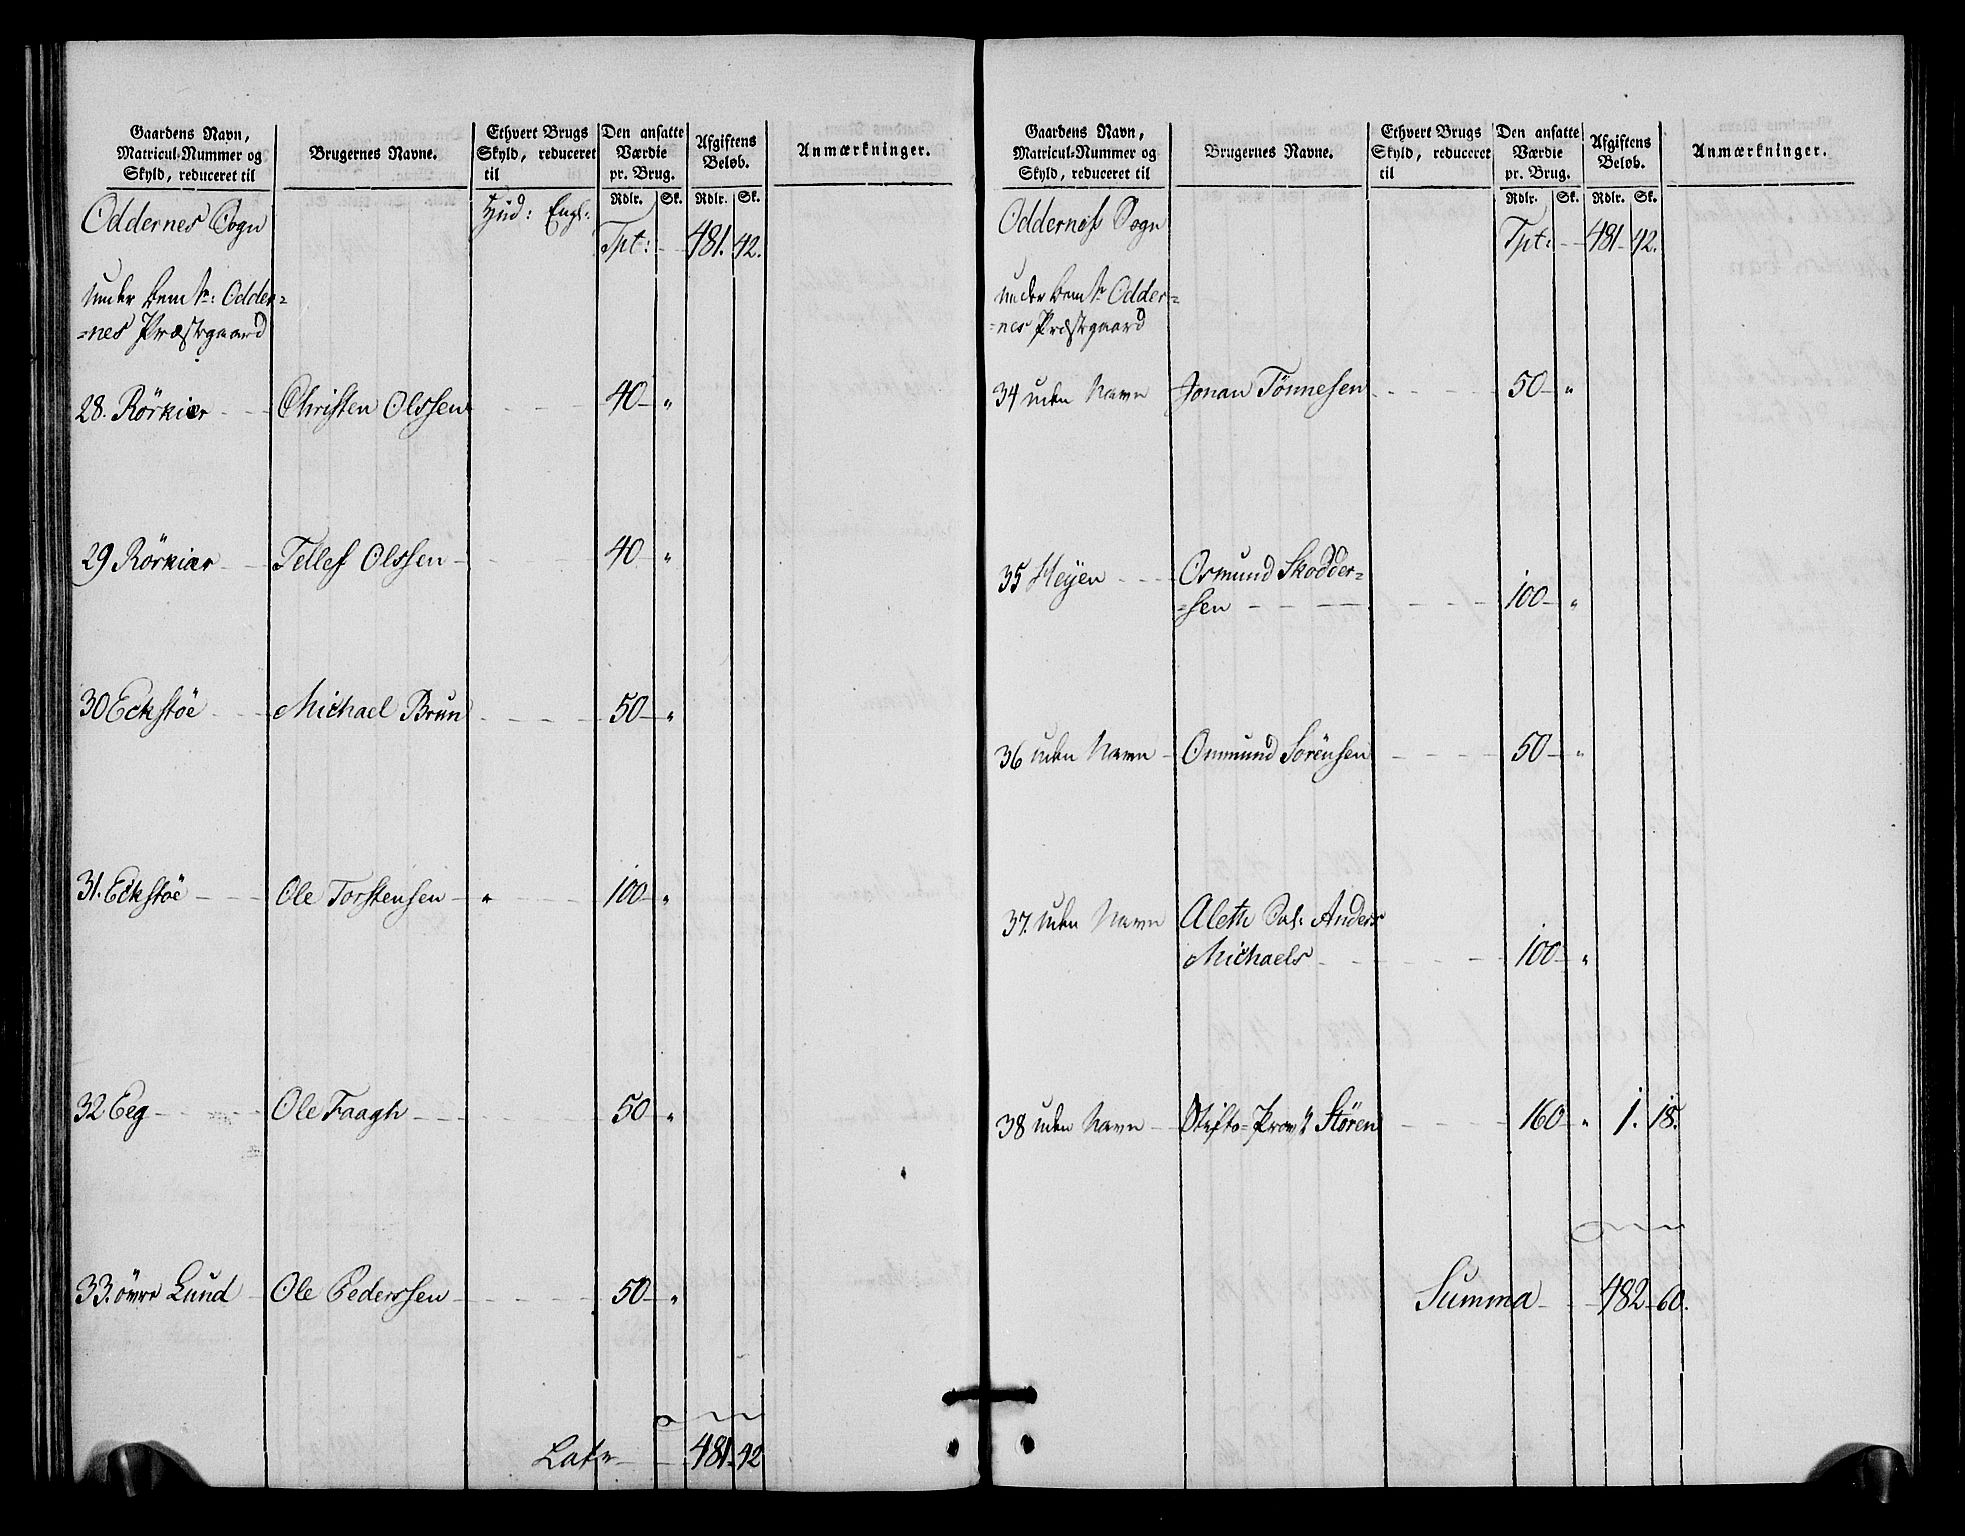 Gaardens Navn, Matricul-Nummer og Skyld, reduceret til | Brugernes Navne. | Ethvert Brugs Skyld, reduceret til | Den ansatte Værdie pr. Brug. | Afgiftens Beløb. | Anmærkninger.
Rdlr. Sk. Rdlr. Sk.
Oddernes Sogn Hud: Engl:
Tpt: 481. 42.
under bem te: Odder-
-nes Præstegaard
28. Rörkier Christen Olssen 40 "
29 Rörkier Tellef Olssen 40 "
30 Eckstöe Michael Brun 50 "
31. Eckstöe Ole Torstensen " 100 "
32 Eeg Ole Faagh 50 "
33. övre Lund Ole Pederssen 50 "
Late 481. 42
Gaardens Navn, Matricul-Nummer og Skyld, reduceret til | Brugernes Navne. | Ethvert Brugs Skyld, reduceret til | Den ansatte Værdie pr. Brug. | Afgiftens Beløb. | Anmærkninger.
Rdlr. Sk. Rdlr. Sk.
Oddernes Sogn
Tpt: 481. 42.
under bem te Odder-
-nes Præstegaard
34 uden Navn Jonan Tönnesen 50 "
35 Heyen Osmund Skodder-
-sen 100 "
36 uden Navn Onmund Sörensen 50 "
37. uden Navn Aleth Sal: Anders
Michaels 100 "
38 uden Navn Stifts-Provst Stören 160 " 1. 18.
Summa 482 60.